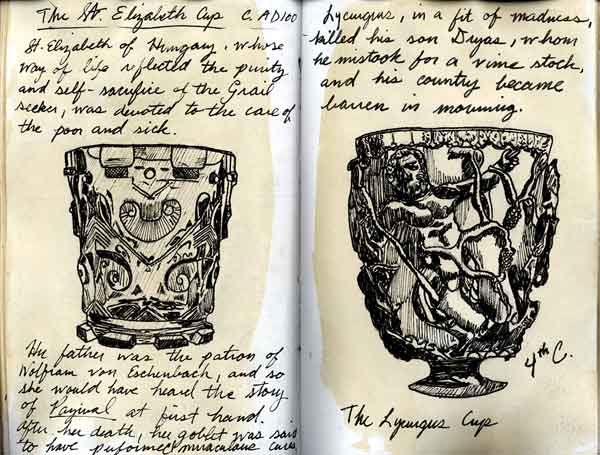 The St. Elizabeth Cup C. AD100
St. Elizabeth of Hungary, whose
way of life reflected the purity
and self-sacrifice of the Grail
seeker, was devoted to the care of
the poor and sick.
Her father was the patron of
Wolfram von Eschenbach, and so
she would have heard the story
of Parzival at first hand.
After her death, her goblet was said
to have performed miraculous cures,
Lycurgus, in a fit of madness,
killed his son Dryas, whom
he mistook for a vine stock,
and his country became
barren in mourning.
4th C.
The Lycurgus Cup